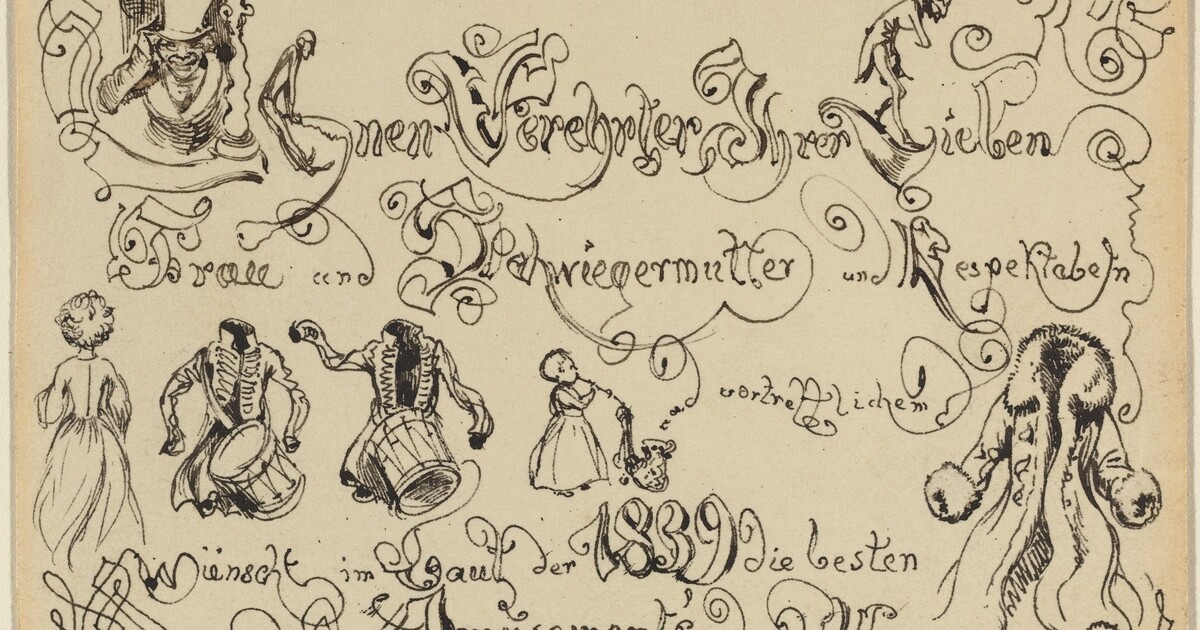 Ihnen Verehrter, Ihrer Lieben
Frau und Schwiegermutter und Respektabeln
vortrefflichem
Wünscht im Lauf der 1839 die besten